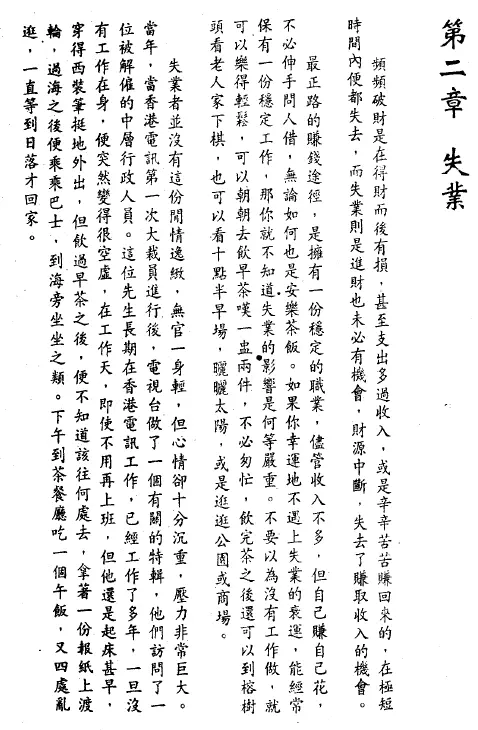 第二章　失業
頻頻破財是在得財而後有損，甚至支出多過收入，或是辛辛苦苦賺回來的，在極短
時間內便都失去，而失業則是進財也未必有機會，財源中斷，失去了賺取收入的機會。
最正路的賺錢途徑，是擁有一份穩定的職業，儘管收入不多，但自己賺自己花，
不必伸手問人借，無論如何也是安樂茶飯。如果你幸運地不遇上失業的衰運，能經常
保有一份穩定工作，那你就不知道失業的影響是何等嚴重。不要以為沒有工作做，就
可以樂得輕鬆，可以朝朝去飲早茶嘆一盅兩件，不必匆忙，飲完茶之後還可以到榕樹
頭看老人家下棋，也可以看十點半早場，曬曬太陽，或是逛逛公園或商場。
失業者並沒有這份閒情逸緻，無官一身輕，但心情卻十分沉重，壓力非常巨大。
當年，當香港電訊第一次大裁員進行後，電視台做了一個有關的特輯，他們訪問了一
位被解僱的中層行政人員。這位先生長期在香港電訊工作，已經工作了多年，一旦沒
有工作在身，便突然變得很空虛，在工作天，即使不用再上班，但他還是起床甚早，
穿得西裝筆挺地外出，但飲過早茶之後，便不知道該往何處去，拿著一份報紙上渡
輪，過海之後便乘乘巴士，到海旁坐坐之類。下午到茶餐廳吃一個午飯，又四處亂
逛，一直等到日落才回家。